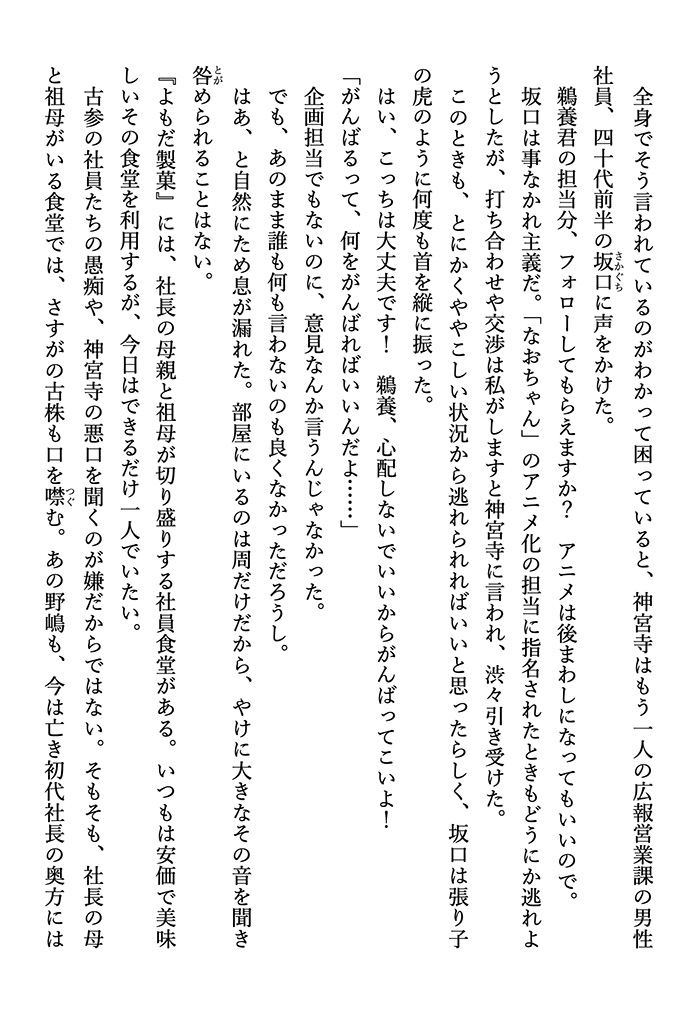 全身でそう言われているのがわかって困っていると、神宮寺はもう一人の広報営業課の男性
社員、四十代前半の坂口に声をかけた。
さかぐち
鵜養君の担当分、フォローしてもらえますか？　アニメは後まわしになってもいいので。
坂口は事なかれ主義だ。「なおちゃん」のアニメ化の担当に指名されたときもどうにか逃れよ
うとしたが、打ち合わせや交渉は私がしますと神宮寺に言われ、渋々引き受けた。
このときも、とにかくややこしい状況から逃れられればいいと思ったらしく、坂口は張り子
の虎のように何度も首を縦に振った。
はい、こっちは大丈夫です！　鵜養、心配しないでいいからがんばってこいよ！
「がんばるって、何をがんばればいいんだよ……」
企画担当でもないのに、意見なんか言うんじゃなかった。
でも、あのまま誰も何も言わないのも良くなかっただろうし。
はあ、と自然にため息が漏れた。部屋にいるのは周だけだから、やけに大きなその音を聞き
咎められることはない。
とが
『よもだ製菓』には、社長の母親と祖母が切り盛りする社員食堂がある。いつもは安価で美味
しいその食堂を利用するが、今日はできるだけ一人でいたい。
古参の社員たちの愚痴や、神宮寺の悪口を聞くのが嫌だからではない。そもそも、社長の母
と祖母がいる食堂では、さすがの古株も口を噤む。あの野嶋も、今は亡き初代社長の奥方には
つぐ